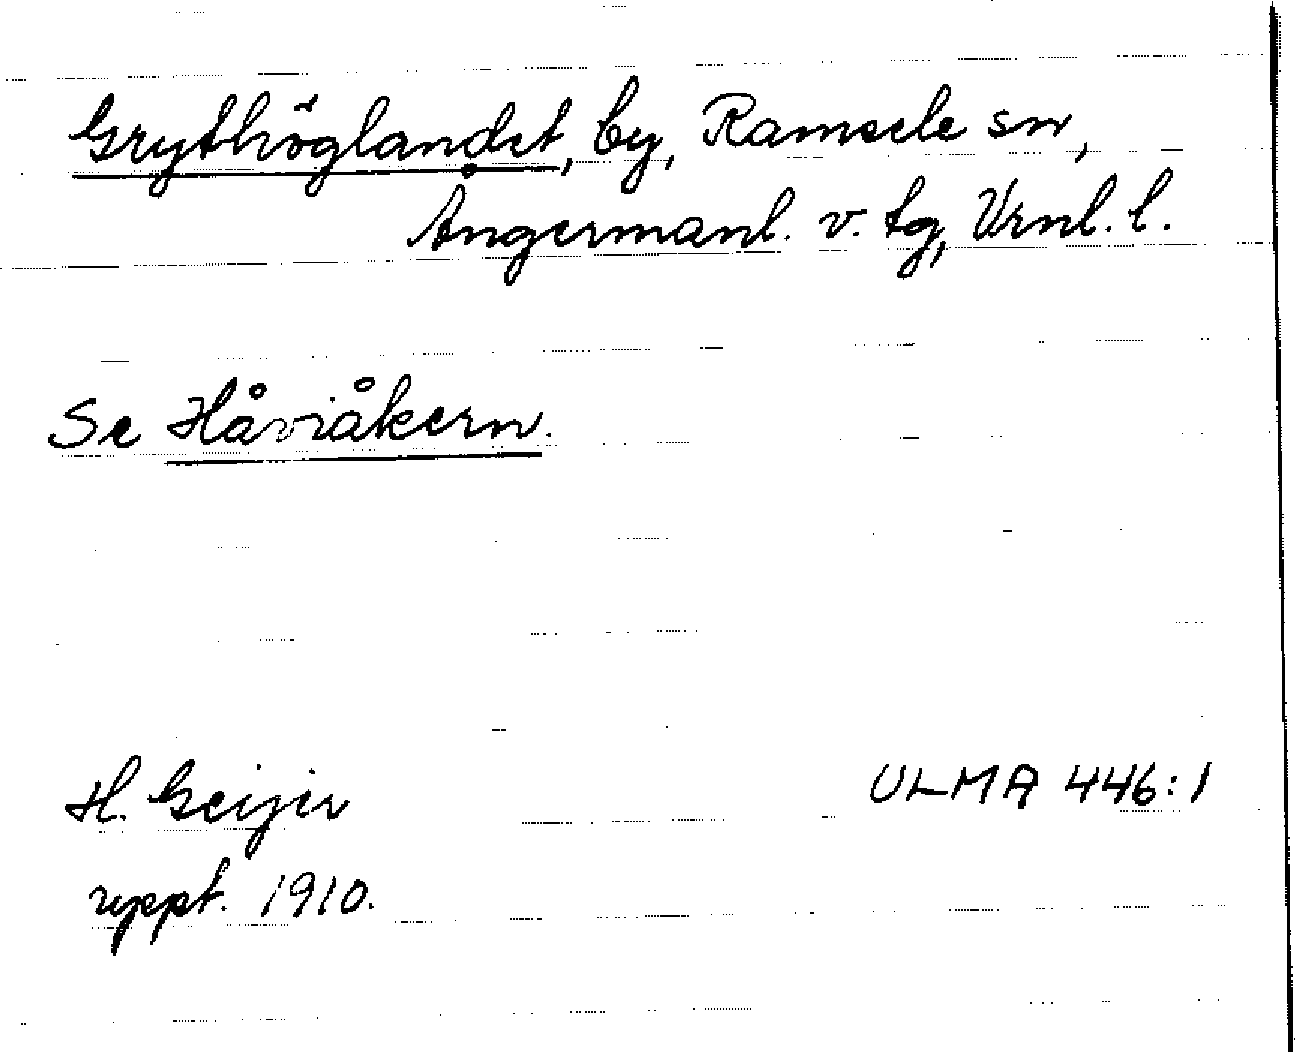 Grythöglandet, by, Ramsele sn,
Ångermanl. v. tg, Vrnl. l.
Se Håviåkern.
H. Geijer ULMA 446:1
uppt. 1910.